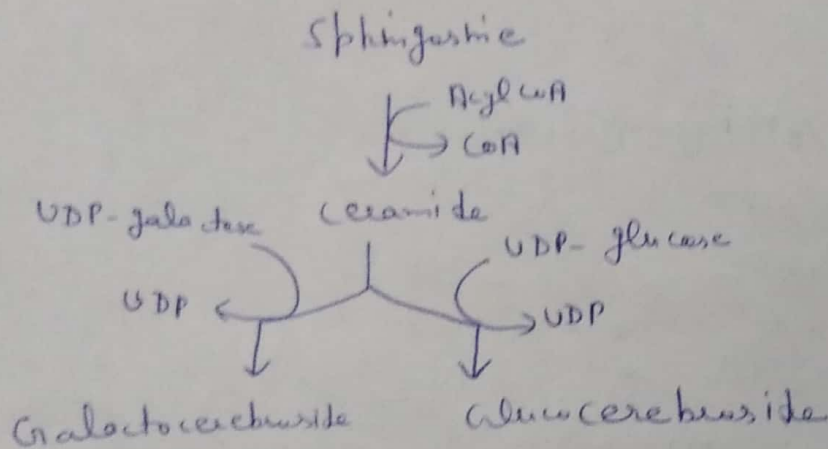 Sphingosine
Acyl CoA
CoA
UDP-galactose ceramide
UDP- glucose
UDP
UDP
Galactocerebroside
Glucocerebroside